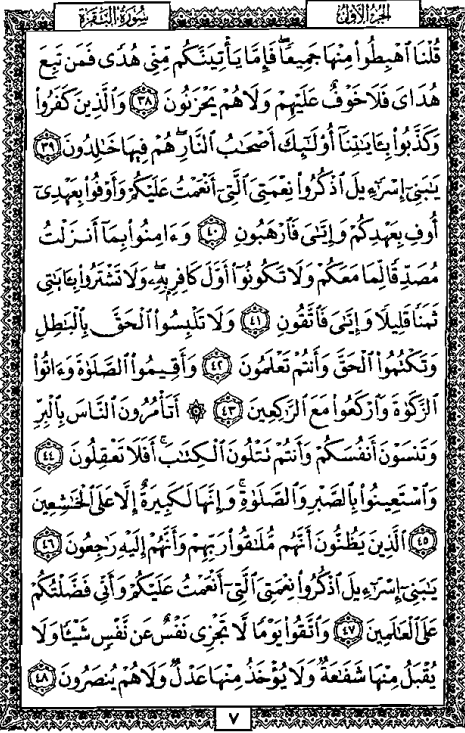 الجزء الأول
سورة البقرة
قُلْنَا ٱهْبِطُوا۟ مِنْهَا جَمِيعًا ۖ فَإِمَّا يَأْتِيَنَّكُم مِّنِّى هُدًى فَمَن تَبِعَ
هُدَاىَ فَلَا خَوْفٌ عَلَيْهِمْ وَلَا هُمْ يَحْزَنُونَ ٣٨ وَٱلَّذِينَ كَفَرُوا۟
وَكَذَّبُوا۟ بِـَٔايَـٰتِنَآ أُو۟لَـٰٓئِكَ أَصْحَـٰبُ ٱلنَّارِ ۖ هُمْ فِيهَا خَـٰلِدُونَ ٣٩
يَـٰبَنِىٓ إِسْرَٰٓءِيلَ ٱذْكُرُوا۟ نِعْمَتِىَ ٱلَّتِىٓ أَنْعَمْتُ عَلَيْكُمْ وَأَوْفُوا۟ بِعَهْدِىٓ
أُوفِ بِعَهْدِكُمْ وَإِيَّـٰىَ فَٱرْهَبُونِ ٤٠ وَءَامِنُوا۟ بِمَآ أَنزَلْتُ
مُصَدِّقًا لِّمَا مَعَكُمْ وَلَا تَكُونُوٓا۟ أَوَّلَ كَافِرٍۭ بِهِۦ ۖ وَلَا تَشْتَرُوا۟ بِـَٔايَـٰتِى
ثَمَنًا قَلِيلًا وَإِيَّـٰىَ فَٱتَّقُونِ ٤١ وَلَا تَلْبِسُوا۟ ٱلْحَقَّ بِٱلْبَـٰطِلِ
وَتَكْتُمُوا۟ ٱلْحَقَّ وَأَنتُمْ تَعْلَمُونَ ٤٢ وَأَقِيمُوا۟ ٱلصَّلَوٰةَ وَءَاتُوا۟
ٱلزَّكَوٰةَ وَٱرْكَعُوا۟ مَعَ ٱلرَّٰكِعِينَ ٤٣ ۞ أَتَأْمُرُونَ ٱلنَّاسَ بِٱلْبِرِّ
وَتَنسَوْنَ أَنفُسَكُمْ وَأَنتُمْ تَتْلُونَ ٱلْكِتَـٰبَ ۚ أَفَلَا تَعْقِلُونَ ٤٤
وَٱسْتَعِينُوا۟ بِٱلصَّبْرِ وَٱلصَّلَوٰةِ ۚ وَإِنَّهَا لَكَبِيرَةٌ إِلَّا عَلَى ٱلْخَـٰشِعِينَ
٤٥ ٱلَّذِينَ يَظُنُّونَ أَنَّهُم مُّلَـٰقُوا۟ رَبِّهِمْ وَأَنَّهُمْ إِلَيْهِ رَٰجِعُونَ ٤٦
يَـٰبَنِىٓ إِسْرَٰٓءِيلَ ٱذْكُرُوا۟ نِعْمَتِىَ ٱلَّتِىٓ أَنْعَمْتُ عَلَيْكُمْ وَأَنِّى فَضَّلْتُكُمْ
عَلَى ٱلْعَـٰلَمِينَ ٤٧ وَٱتَّقُوا۟ يَوْمًا لَّا تَجْزِى نَفْسٌ عَن نَّفْسٍ شَيْـًٔا وَلَا
يُقْبَلُ مِنْهَا شَفَـٰعَةٌ وَلَا يُؤْخَذُ مِنْهَا عَدْلٌ وَلَا هُمْ يُنصَرُونَ ٤٨
٧